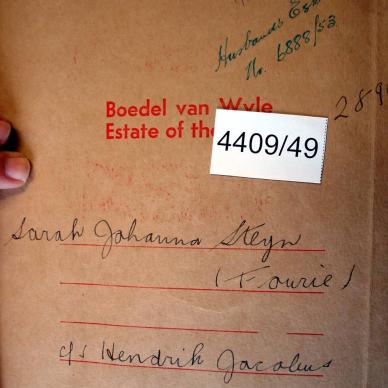 Husbands Est
No. 6888/53
Boedel van Wyle
Estate of the
4409/49
Sarah Johanna Steyn
(Fourie)
c/s Hendrik Jacobus